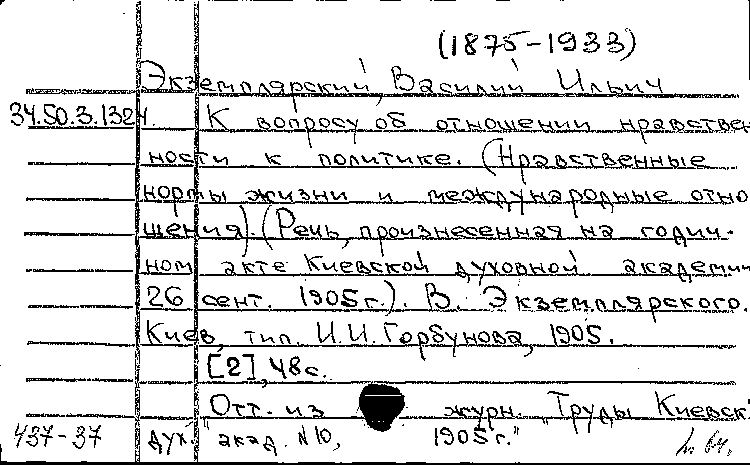 (1875-1933)
Экземплярский, Василий Ильич
34.50.3.132ч. К вопросу об отношении нравствен
ности к политике. (Нравственные
нормы жизни и международные отно
шения) (Речь, произнесенная на годич-
ном акте Киевской духовной академии
26 сент. 1905 г.). В. Экземплярского.
Киев, тип. И.И. Горбунова, 1905.
[2], 48 с.
Отт. из журн. "Труды Киевск.
437-37 дух. акад. N10, 1905 г."